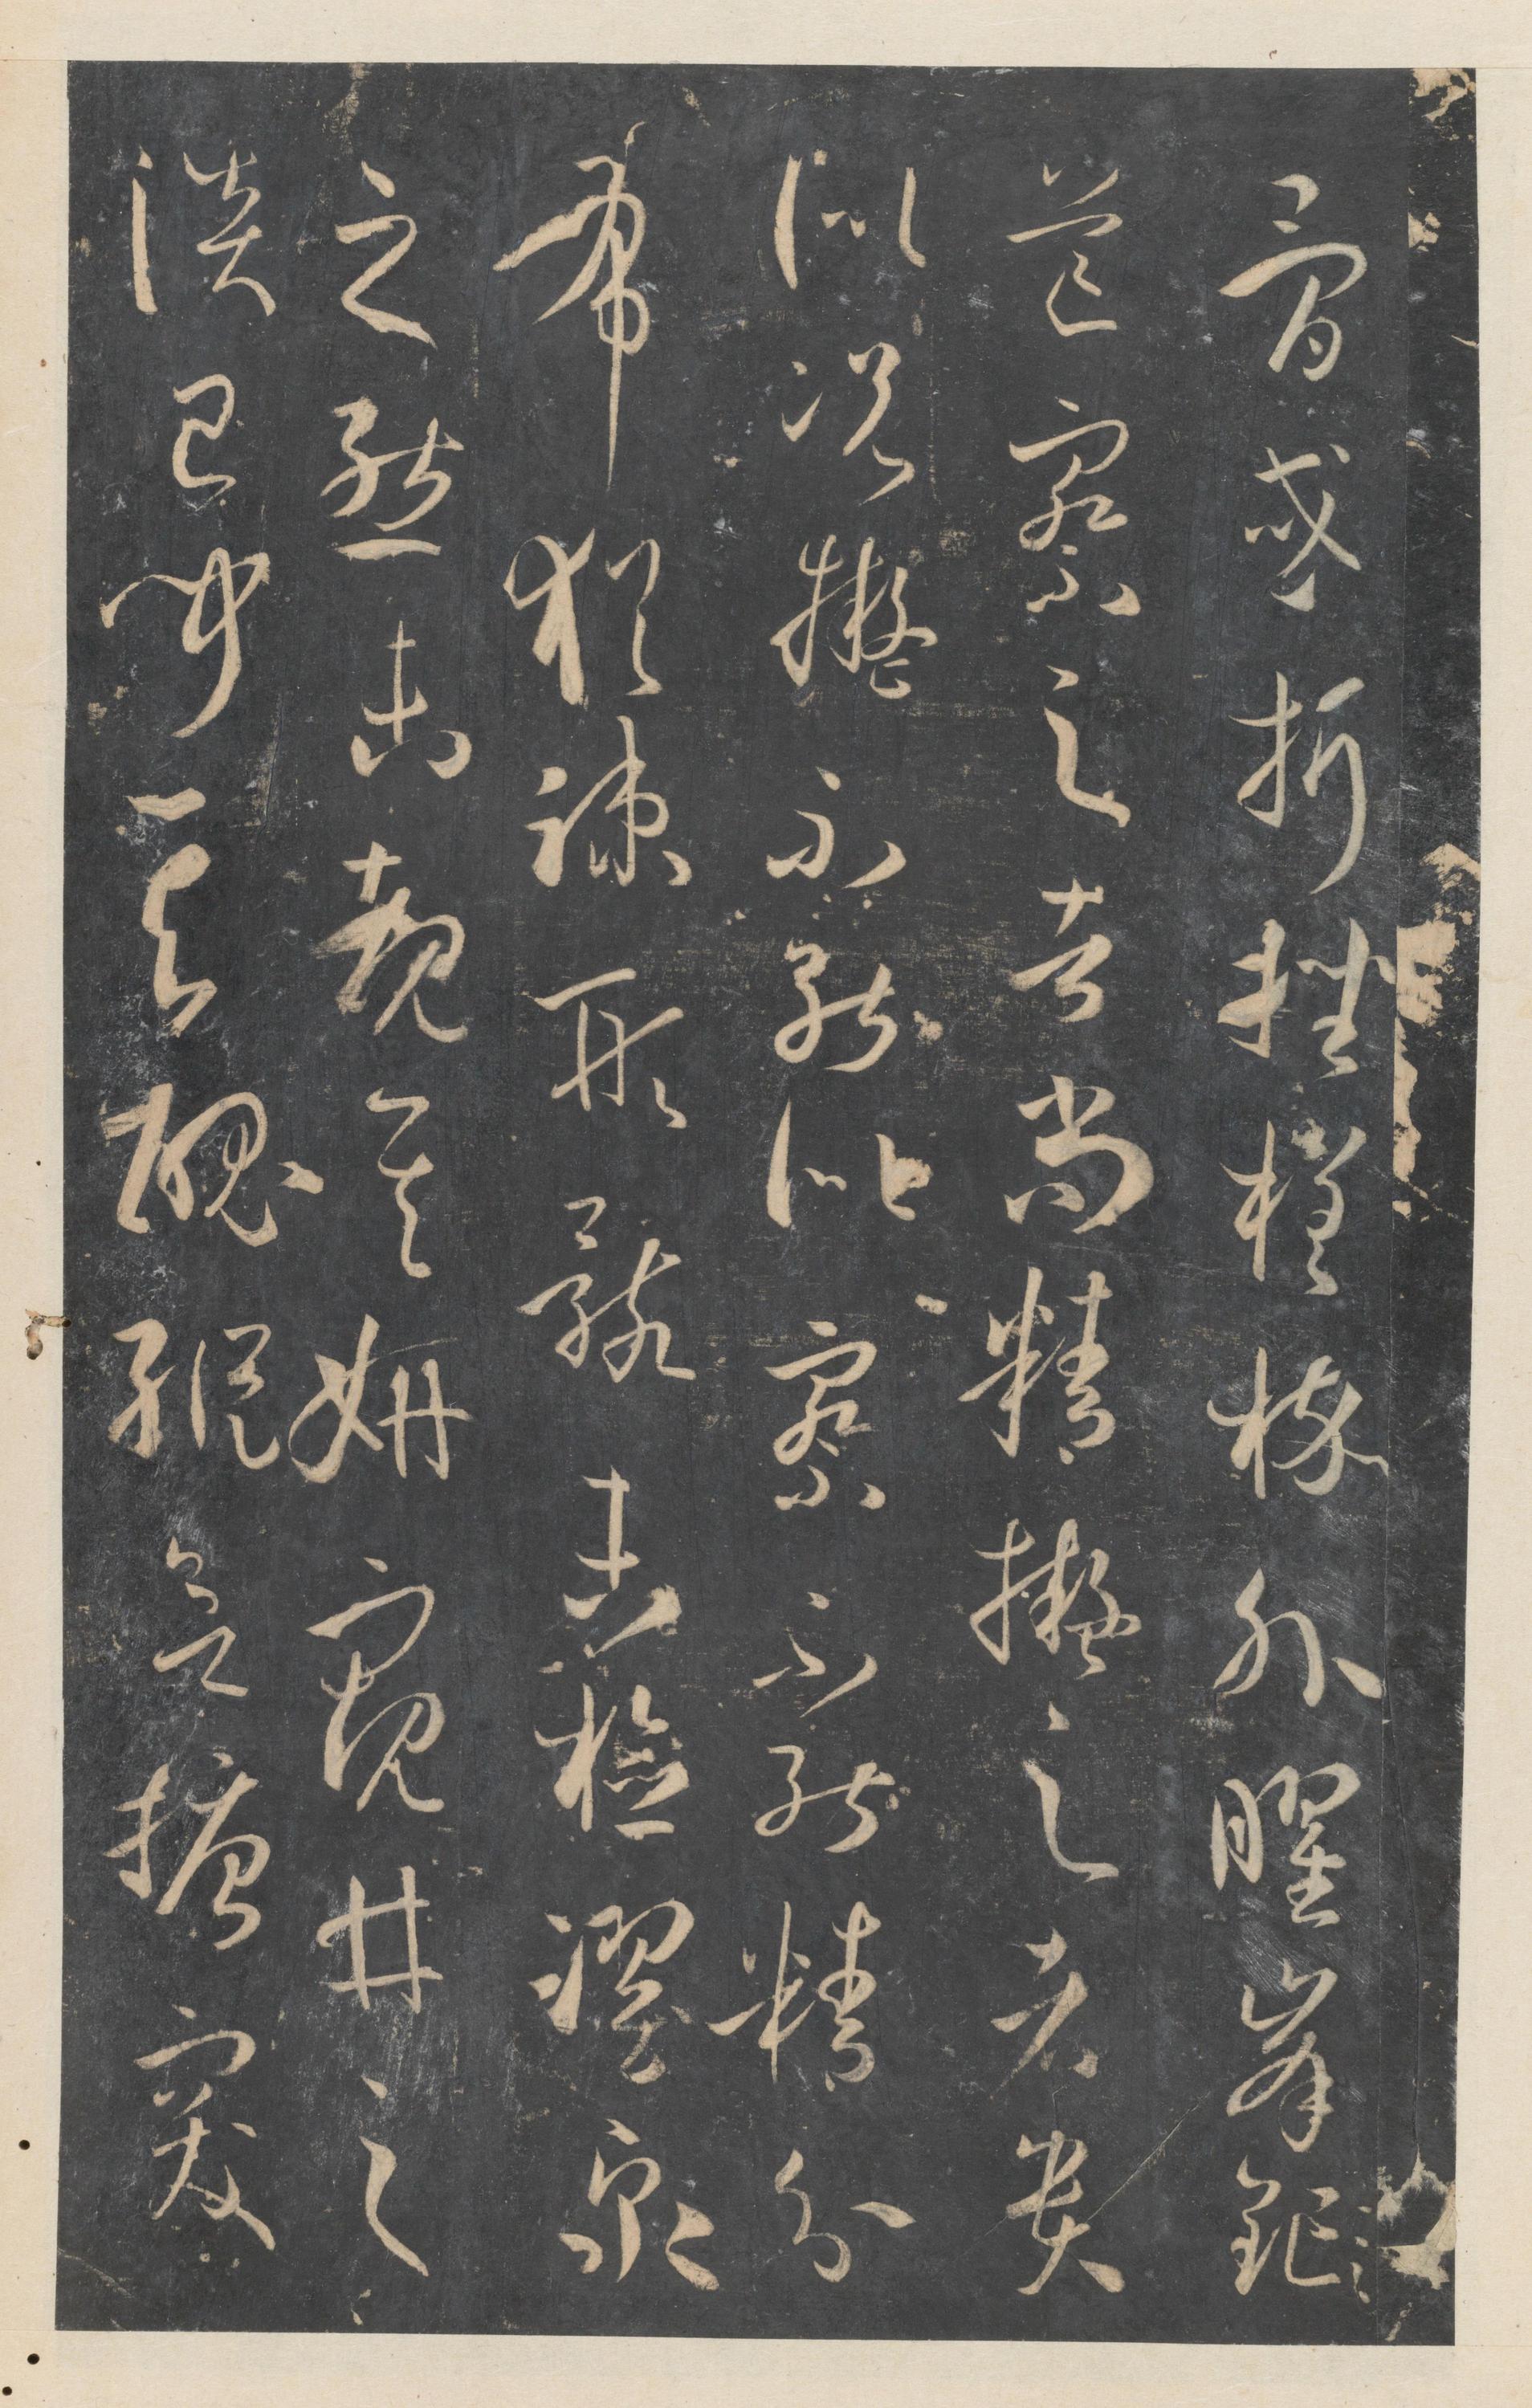 骨或折挫槎枿外曜峯鋩
芒察之者尚精擬之者貴
似況擬不能似察不能精分
布猶疎形骸未檢躍泉
之態未覩其妍窺井之
談已聞其醜縱欲搪突